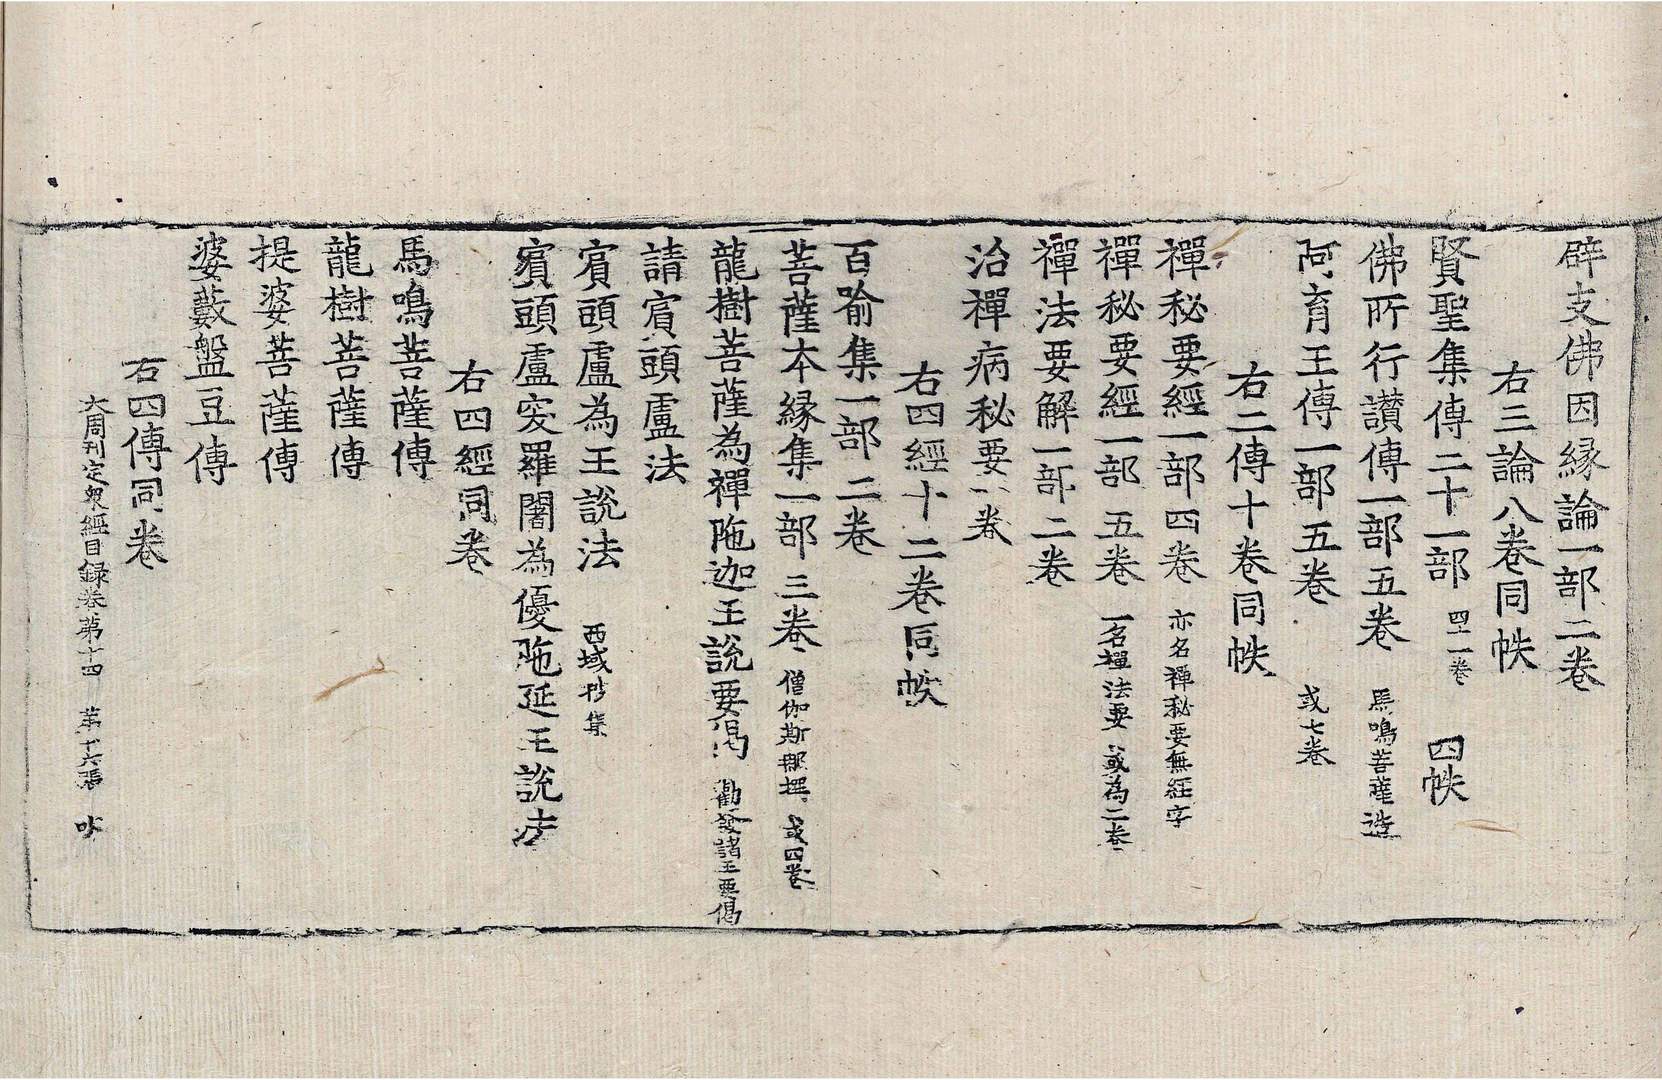 辟支佛因縁論一部二卷
右三論八卷同帙
賢聖集傳二十一部 四十一卷 四帙
佛所行讃傳一部五卷 馬鳴菩薩造
阿育王傳一部五卷 或七卷
右二傳十卷同帙
禪秘要經一部四卷 亦名禪秘要無經字
禪秘要經一部五卷 一名禪法要 或為二卷
禪法要解一部二卷
治禪病秘要一卷
右四經十二卷同帙
百喻集一部二卷
菩薩本縁集一部三卷 僧伽斯那撰 或四卷
龍樹菩薩為禪陁迦王說要偈 勸發諸王要偈
請賓頭盧法
賓頭盧為王說法 西域抄集
賓頭盧突羅闍為優陁延王說法
右四經同卷
馬鳴菩薩傳
龍樹菩薩傳
提婆菩薩傳
婆藪盤豆傳
右四傳同卷
大周刊定衆經目録卷第十四 第十六張 吵